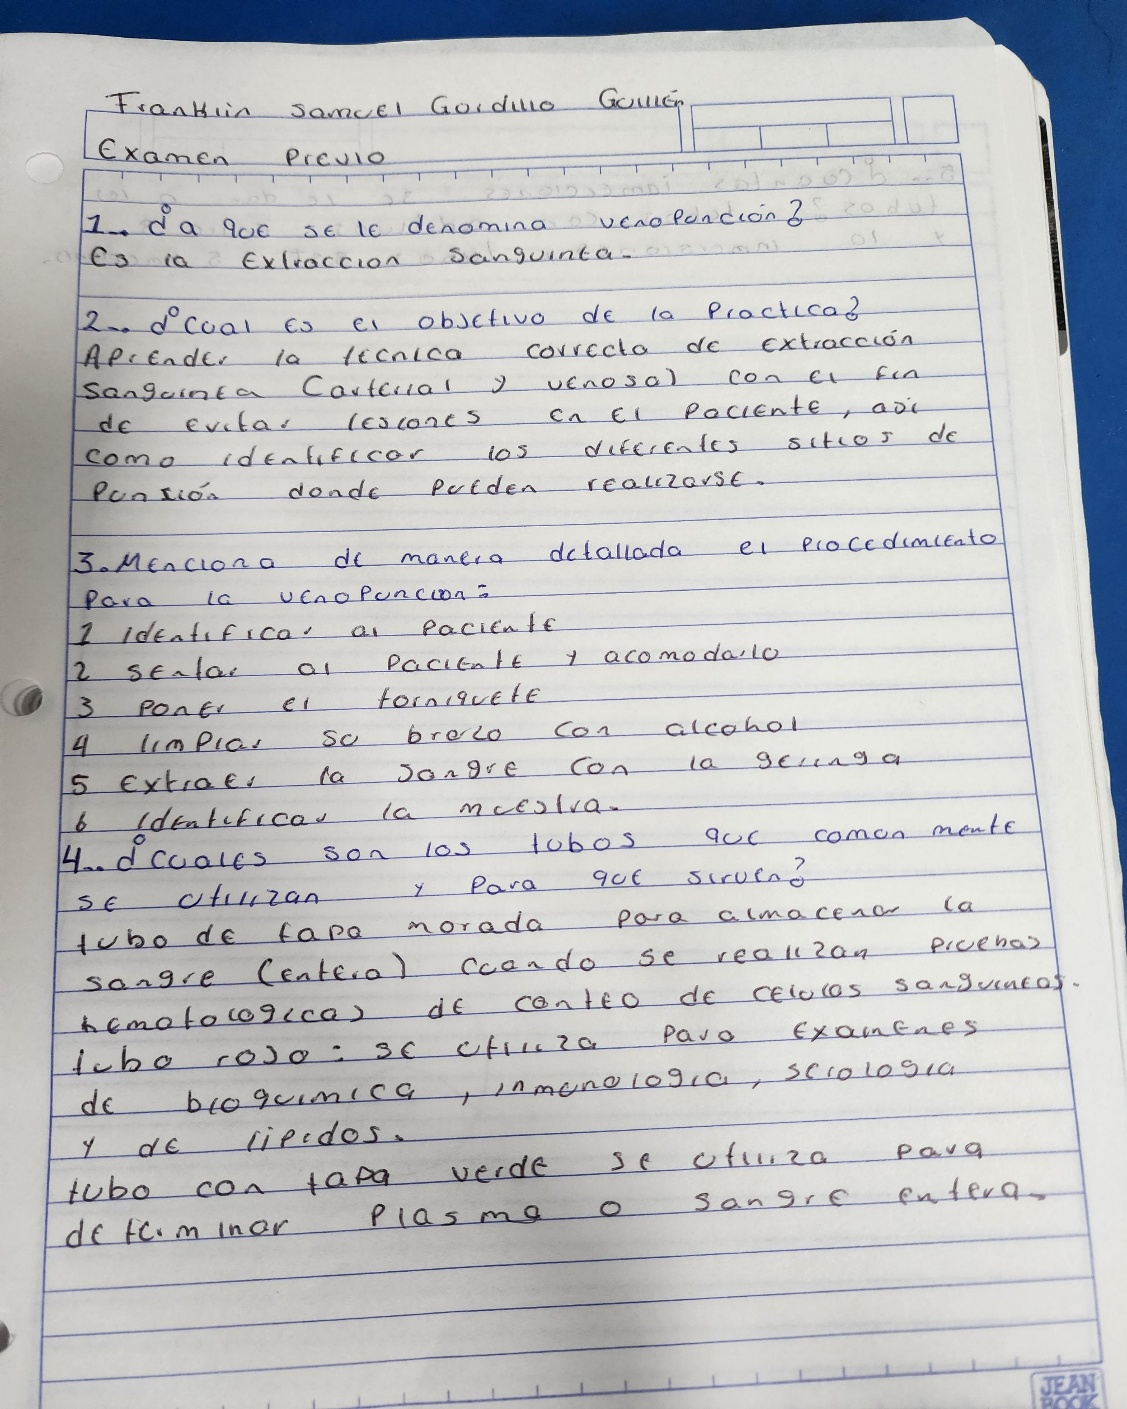 Franklin Samuel Gordillo Guillén
Examen Previo
1.. ¿a que se le denomina venopunción?
Es la Extraccion Sanguinea.
2.. ¿Cual es el objetivo de la Practica?
Aprender la tecnica correcta de extracción
sanguinea (arterial y venosa) con el fin
de evitar lesiones en el paciente, asi
como identificar los diferentes sitios de
Punsión donde pueden realizarse.
3. Menciona de manera detallada el procedimiento
Para la venopuncion:
1 identificar al paciente
2 sentar al paciente y acomodarlo
3 poner el torniquete
4 limpiar su brazo con alcohol
5 extraer la sangre con la geringa
6 identificar la muestra.
4.. ¿cuales son los tubos que comun mente
se utilizan y para que sirven?
tubo de tapa morada para almacenar la
sangre (entera) cuando se realizan pruebas
hematologicas de conteo de celulas sanguineas.
tubo rojo: se utiliza para examenes
de bioquimica, inmunologia, serologia
y de lipidos.
tubo con tapa verde se utiliza para
determinar plasma o sangre entera.
JEAN
BOOK